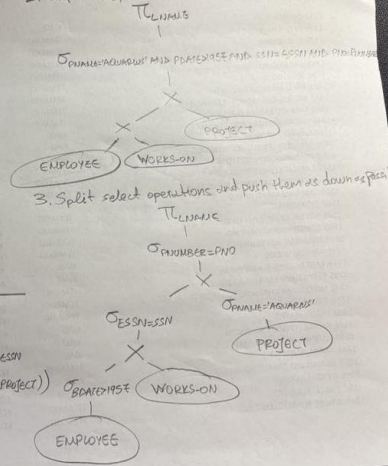 π LNAME
σ PNAME='AQUARIUS' AND PDATE>1957 AND SSN=ESSN AND PNO=PNUMBER
X
X
PROJECT
EMPLOYEE
WORKS-ON
3. Split select operations and push them as down as
π LNAME
σ PNUMBER=PNO
X
σ PNAME='AQUARIUS'
σ ESSN=SSN
PROJECT
X
ESSN
PROJECT))
σ BDATE>1957
WORKS-ON
EMPLOYEE